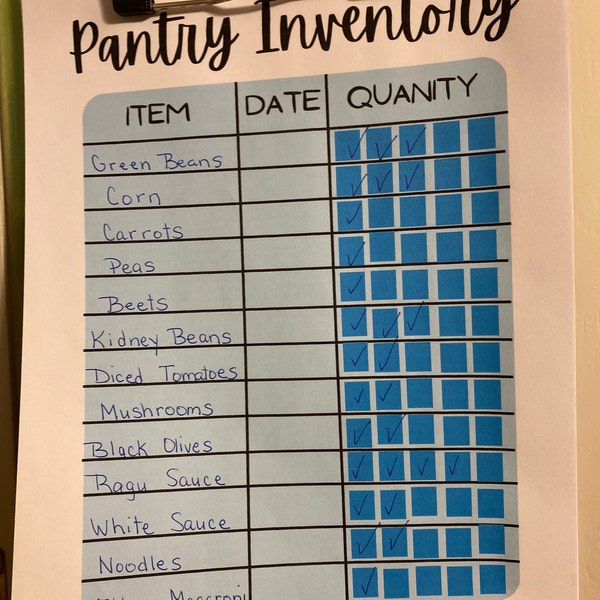 Pantry Inventory
ITEM DATE QUANITY
Green Beans ✓ ✓ ✓
Corn ✓ ✓ ✓
Carrots ✓
Peas ✓
Beets ✓
Kidney Beans ✓ ✓ ✓
Diced Tomatoes ✓ ✓
Mushrooms ✓ ✓
Black Olives ✓ ✓
Ragu Sauce ✓ ✓ ✓ ✓
White Sauce ✓ ✓
Noodles ✓ ✓
Macaroni ✓